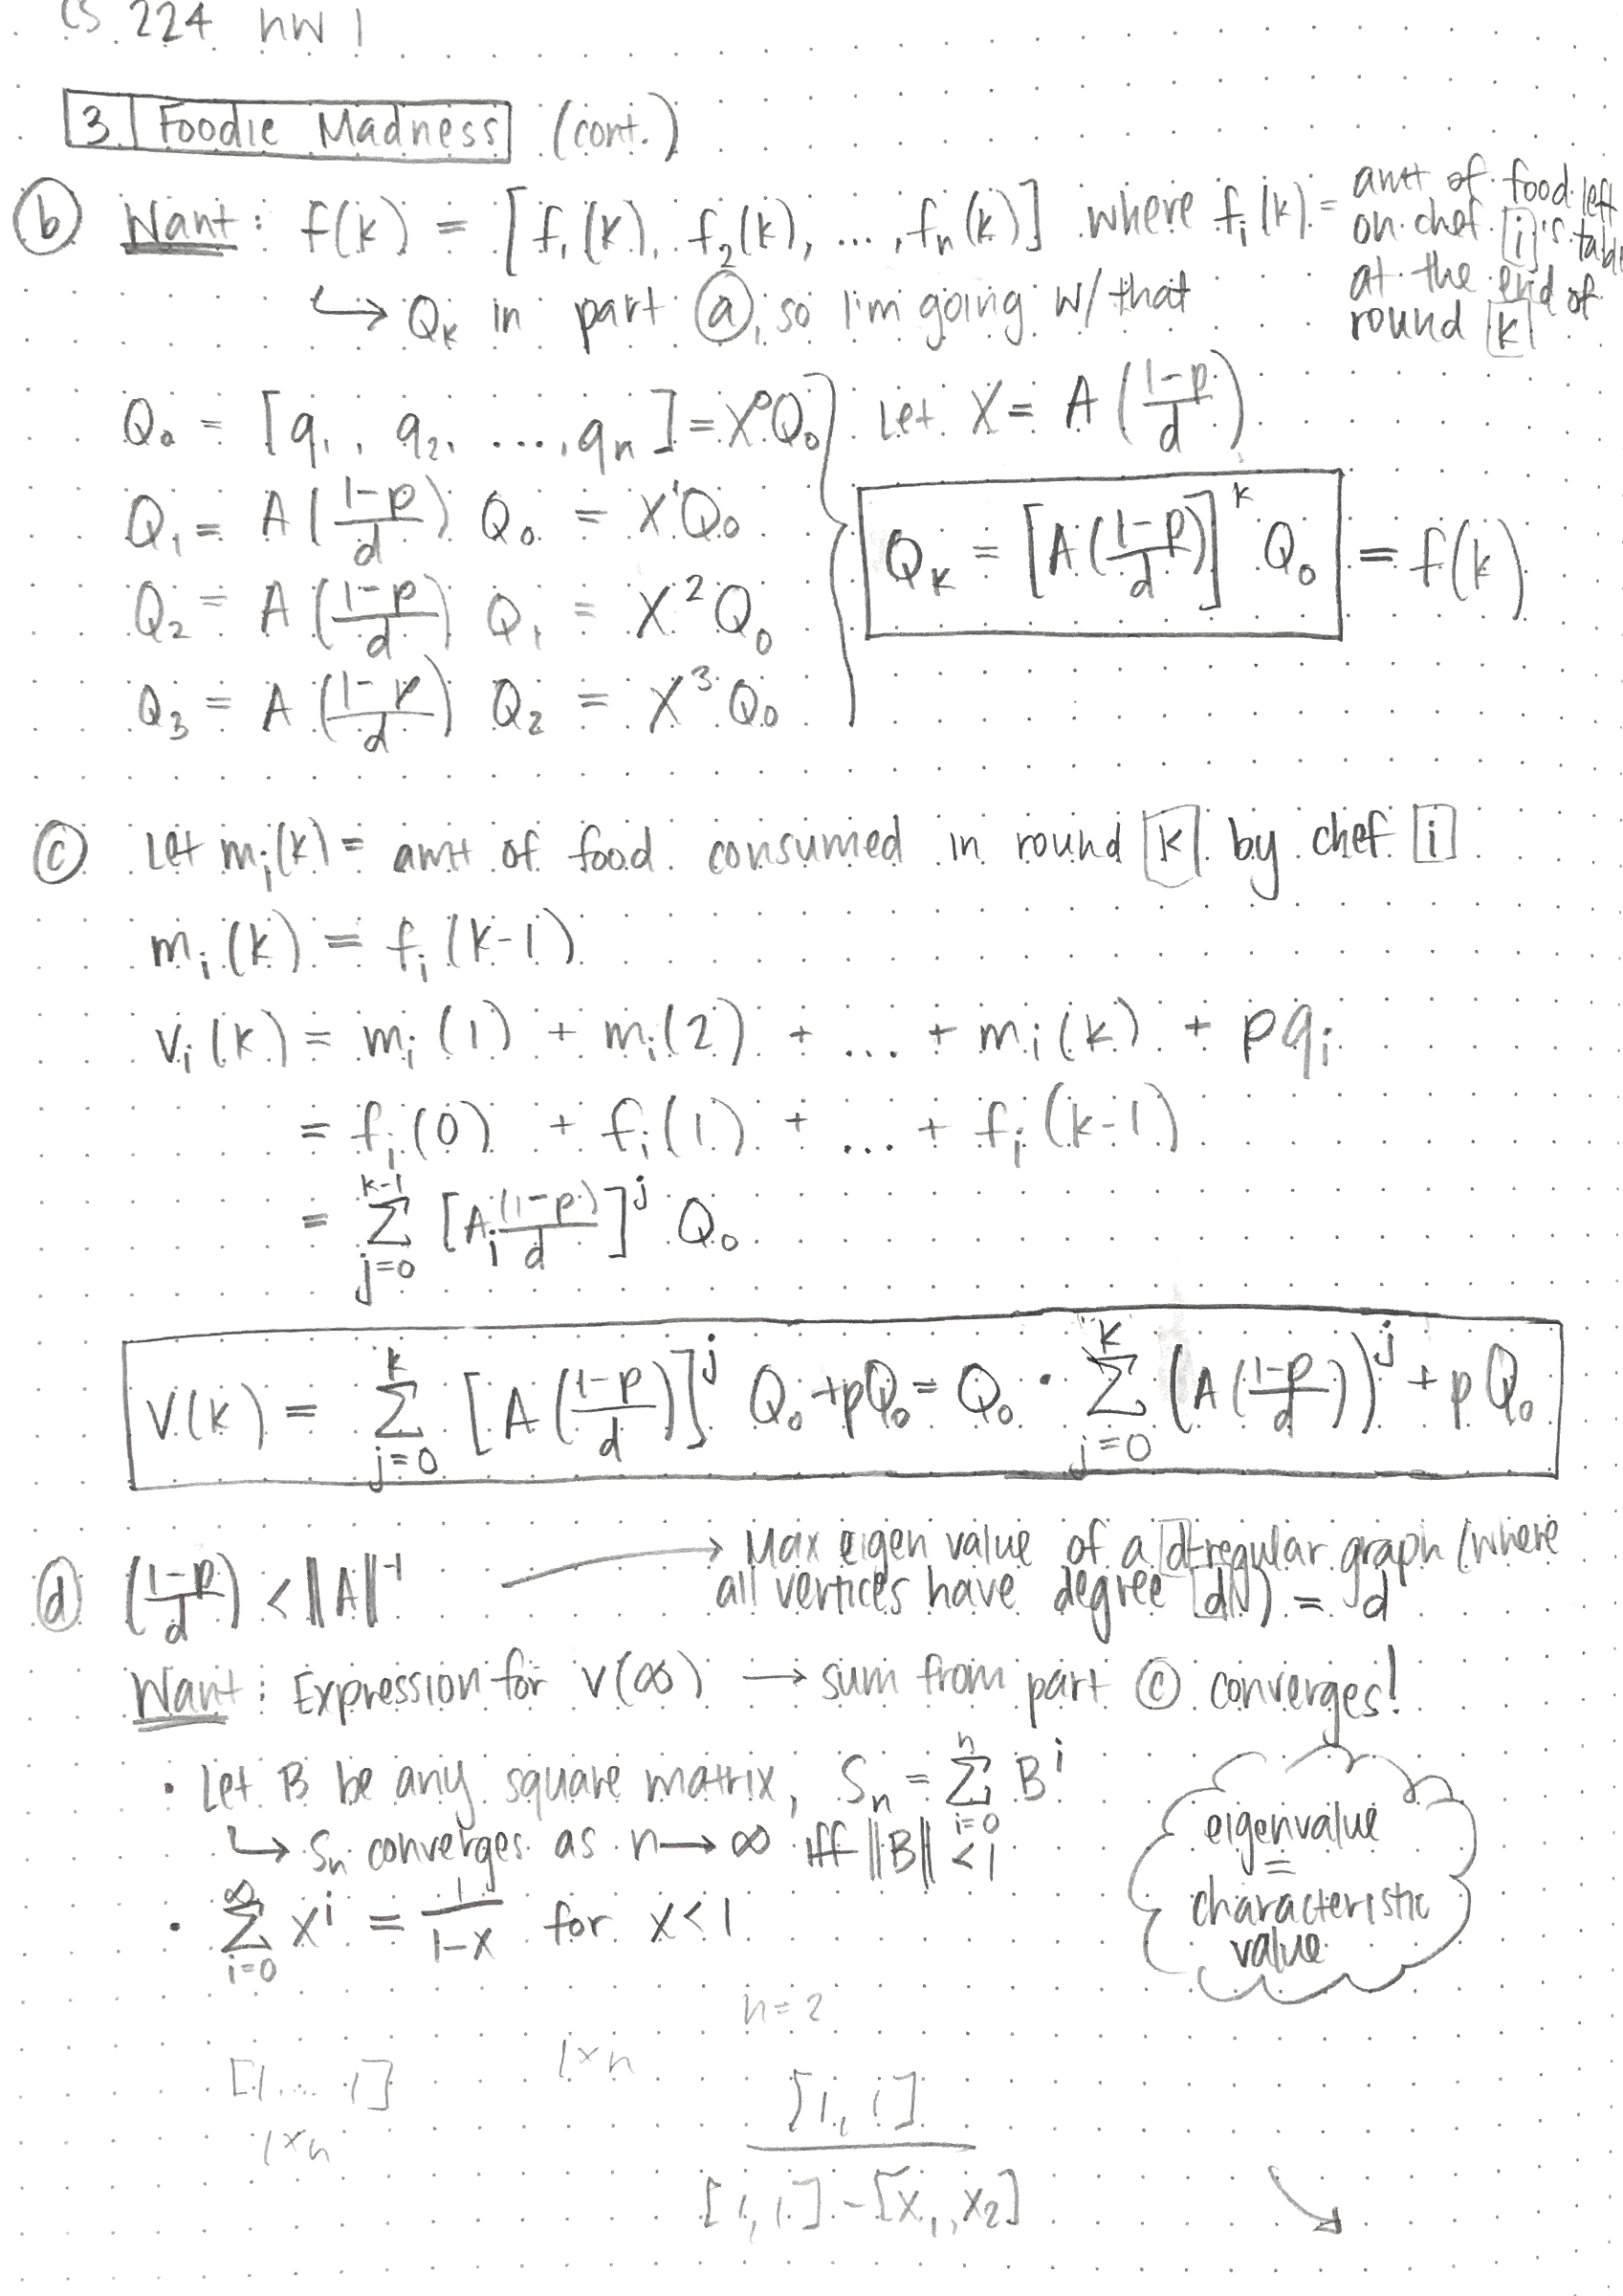 CS 224 HW 1
3. Foodie Madness (cont.)
(b) Want: f(k) = [f₁(k), f₂(k), ..., fₙ(k)] where fᵢ(k) = amt of food left on chef [i]'s table at the end of round [k]
↳ Qₖ in part (a), so I'm going w/ that
Q₀ = [q₁, q₂, ..., qₙ] = X⁰Q₀
Let X = A((1-p)/d)
Q₁ = A((1-p)/d) Q₀ = X¹Q₀
Qₖ = [A((1-p)/d)]ᵏ Q₀ = f(k)
Q₂ = A((1-p)/d) Q₁ = X²Q₀
Q₃ = A((1-p)/d) Q₂ = X³Q₀
(c) Let mᵢ(k) = amt of food consumed in round [k] by chef [i]
mᵢ(k) = fᵢ(k-1)
vᵢ(k) = mᵢ(1) + mᵢ(2) + ... + mᵢ(k) + pqᵢ
= fᵢ(0) + fᵢ(1) + ... + fᵢ(k-1)
= Σ_{j=0}^{k-1} [Aᵢ(1-p)/d]ʲ Q₀
V(k) = Σ_{j=0}^{k} [A((1-p)/d)]ʲ Q₀ + pQ₀ = Q₀ · Σ_{j=0}^{k} (A((1-p)/d))ʲ + pQ₀
(d) ((1-p)/d) < ‖A‖⁻¹ → Max eigen value of a [d]-regular graph (where all vertices have degree [d]) = d
Want: Expression for v(∞) → sum from part (c) converges!
• Let B be any square matrix, Sₙ = Σ_{i=0}^{n} Bⁱ
↳ Sₙ converges as n → ∞ iff ‖B‖ < 1
eigenvalue
=
characteristic
value
• Σ_{i=0}^{∞} xⁱ = 1/(1-x) for x < 1
n = 2
[1, ... 1]
1×n
1×n
[1, 1]
[1, 1] - [x₁, x₂]